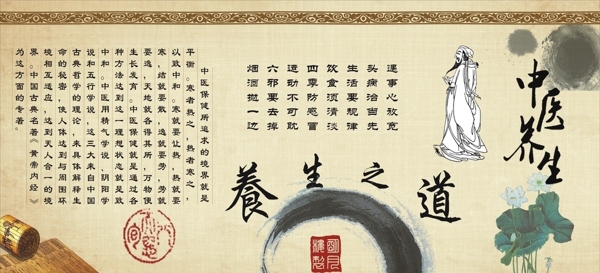 中医养生
逢事心放宽
头病治当先
生活要规律
饮食须清淡
四季防感冒
运动不可耽
六邪要去掉
烟酒抛一边
養生之道
中医保健所追求的境界就是
平衡。寒者热之，热者寒之，
以致中和。寒就要让热，热就要
寒，结就要散，逸就要劳，劳就
要逸，天地就各得其所，万物便
生长发育。中医保健就是通过各
种方法达到这一理想状态就是致
中和。中医用精气学说、阴阳学
说和五行学说，这三大来自中国
古典哲学的理论，来具体解释生
命的秘密，使人体达到与周围环
境相互适应，达到天人合一的境
界。中国古典名著《黄帝内经》
为这方面的专著。